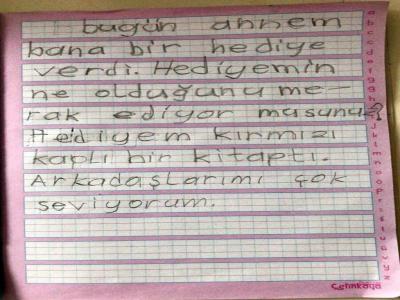 bugün annem
bana bir hediye
verdi. Hediyemin
ne olduğunu me-
rak ediyor musunuz?
Hediyem kırmızı
kaplı bir kitaptı.
Arkadaşlarımı çok
seviyorum.
Çetinkaya